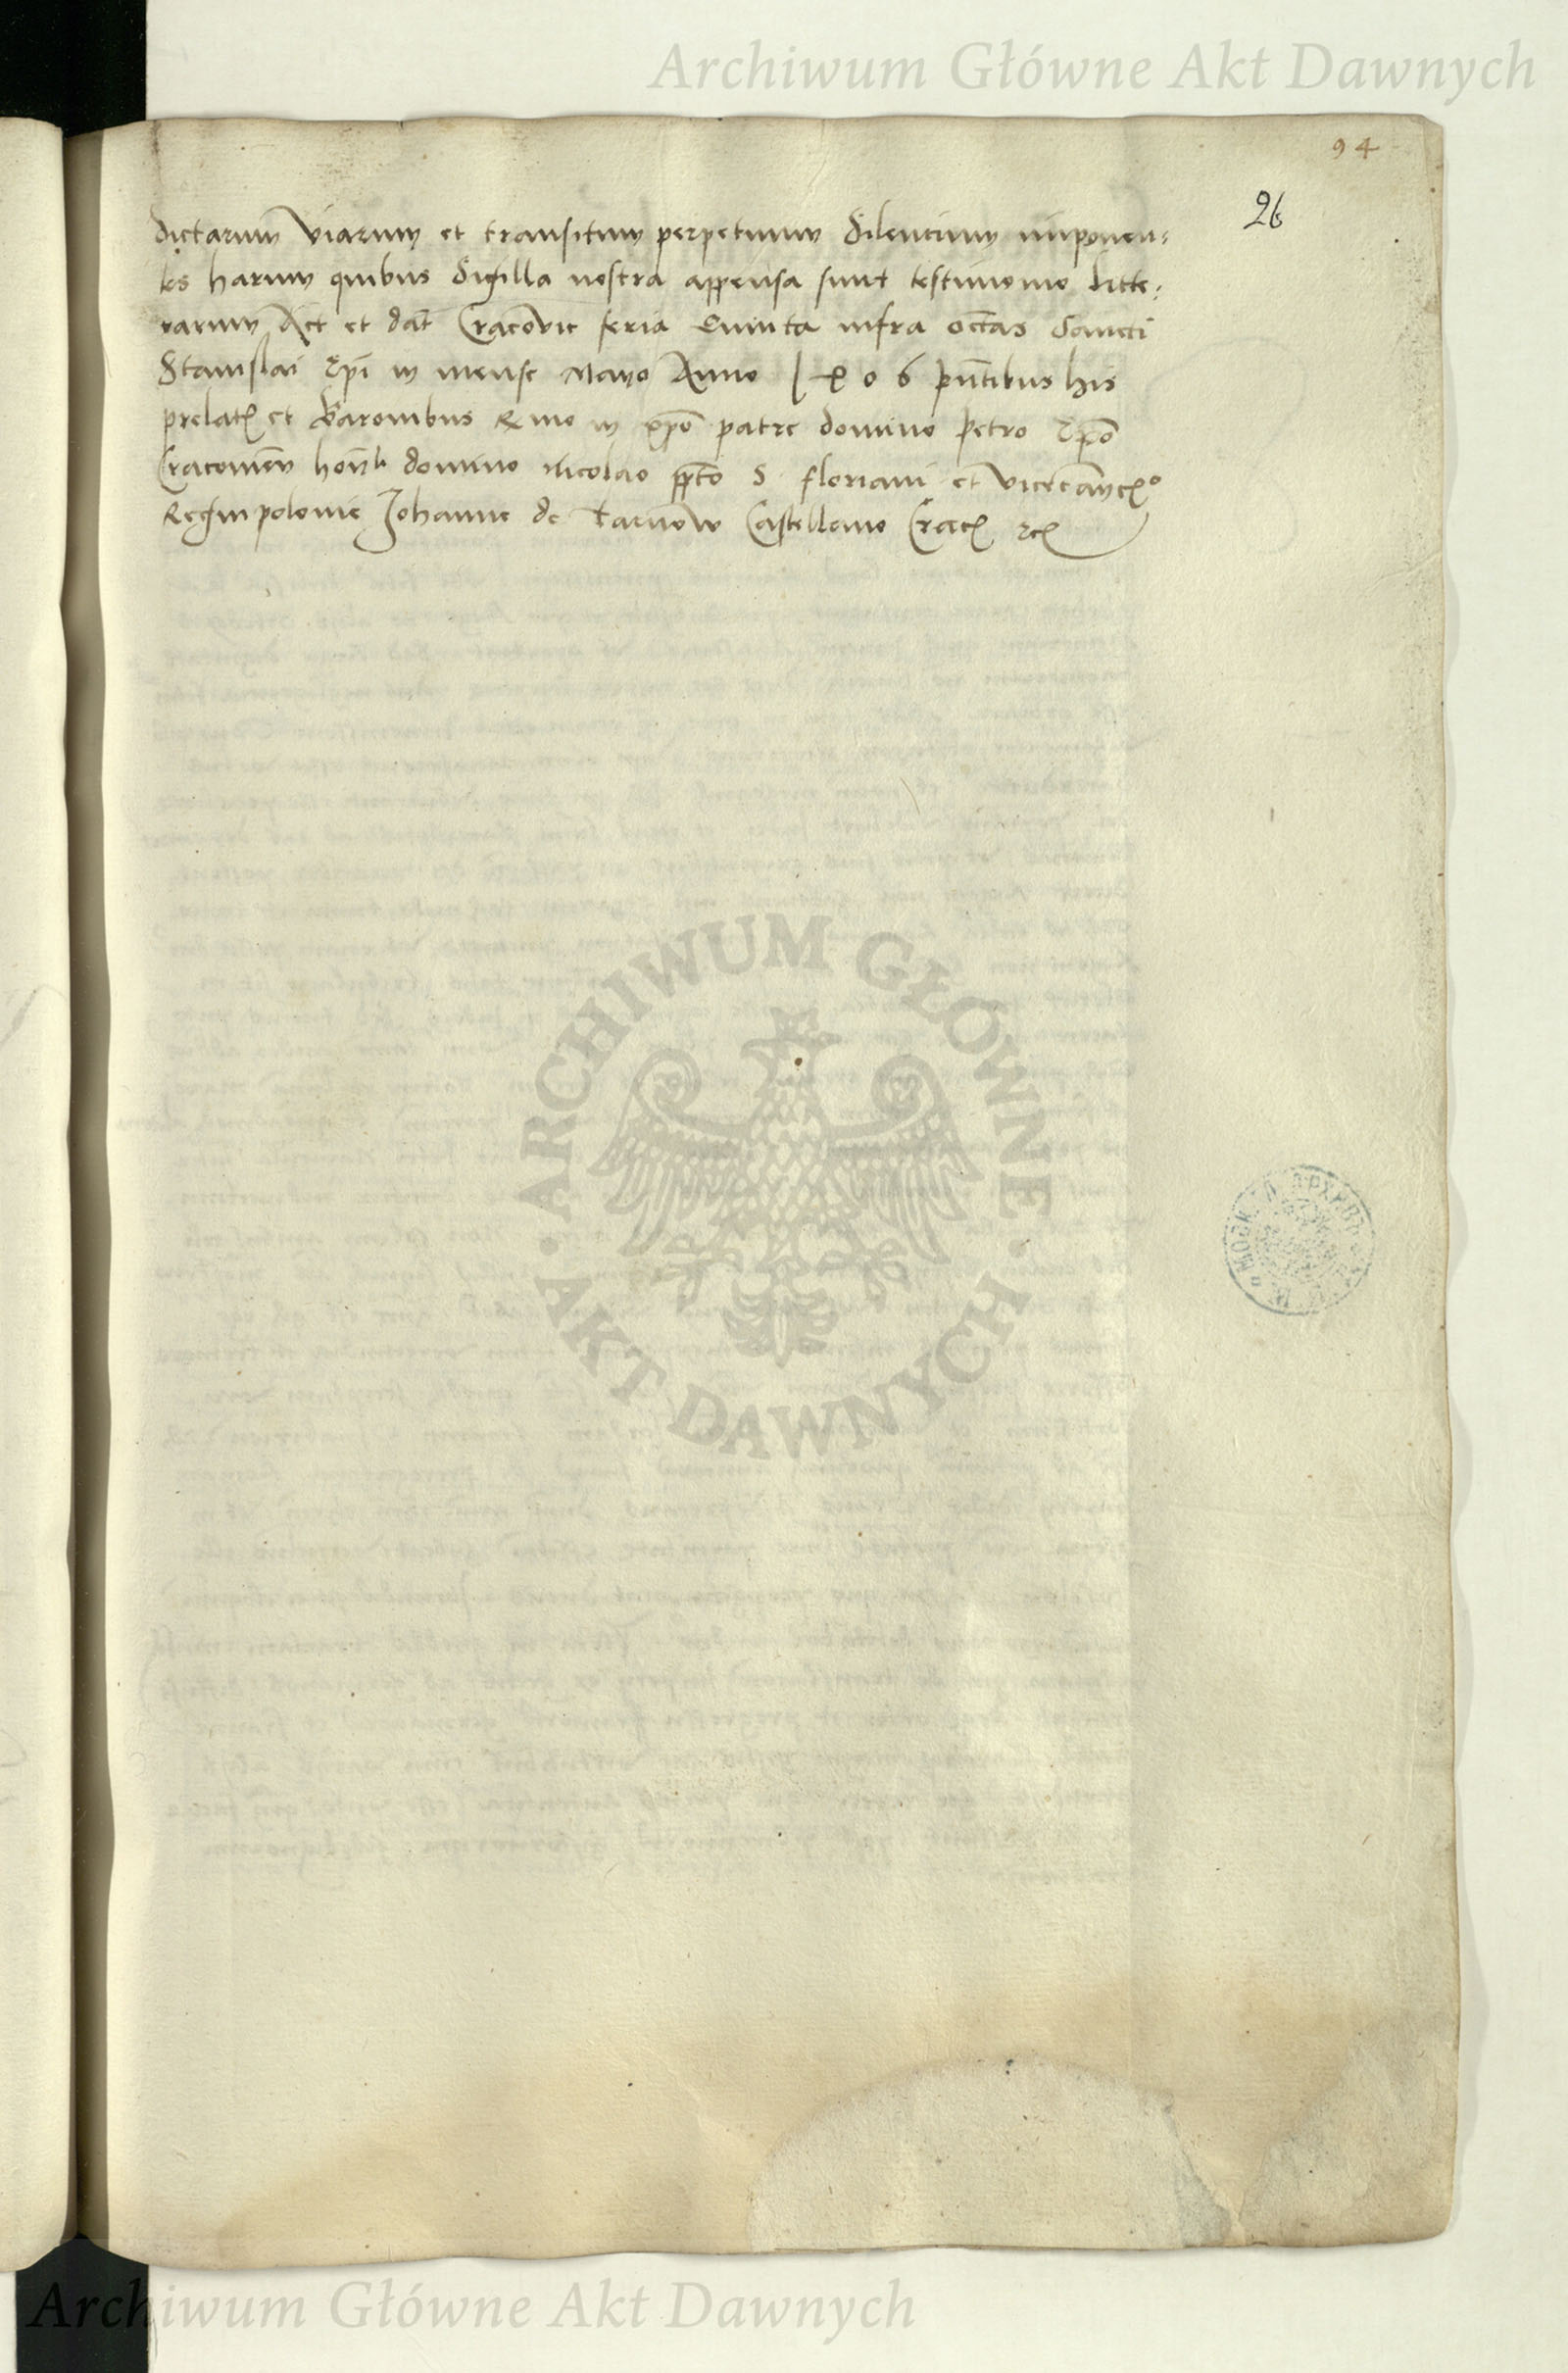 Archiwum Główne Akt Dawnych
94
26
dictarum viarum et transitum perpetuum silencium imponen-
tes harum quibus Sigilla nostra appensa sunt testimonio litte-
rarum Act et dat Cracovie feria Quinta infra octas Sancti
Stanislai Epi in mense Mayo Anno 1506 pntibus his
prelat et Baronibus Rmo in xpo patre domino Petro Epo
Cracovien domino Nicolao S. Floriani et
Regni polonie Johanne de Tarnow Castellano Crac etc
ARCHIWUM GŁÓWNE
· AKT DAWNYCH ·
Archiwum Główne Akt Dawnych